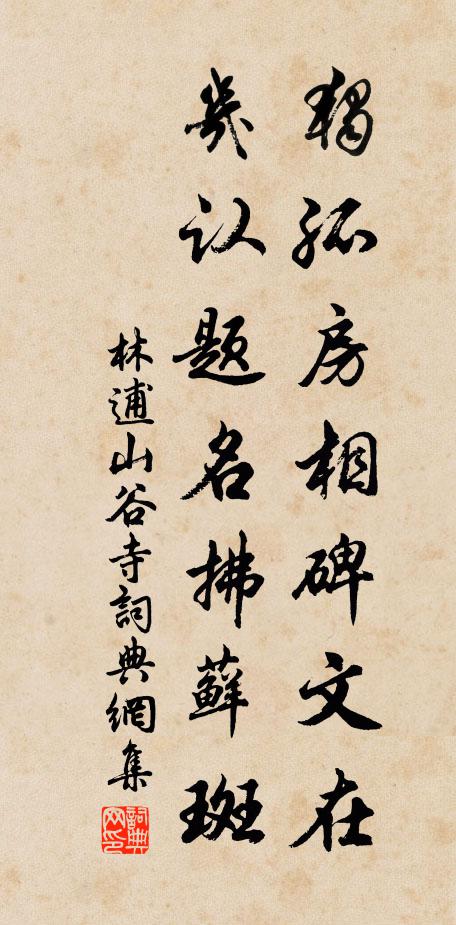 獨孤房相碑文在
幾认題名拂蘚斑
林逋山谷寺詞典網集
詞典網印